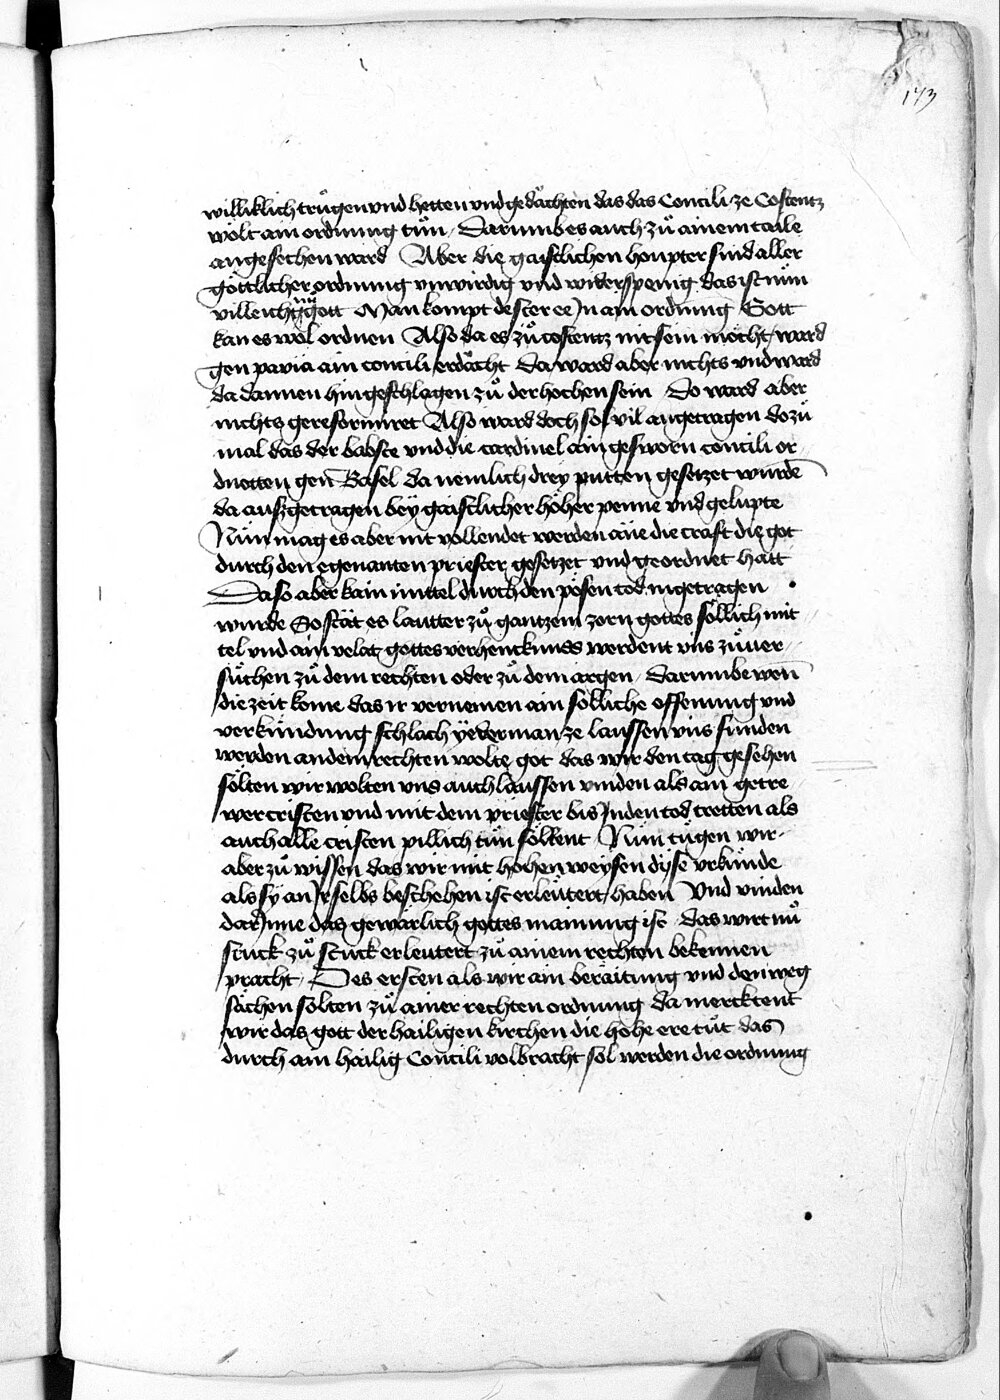 173
williklich trůgen vnd hetten vnd gedåchten das das Concili ze Costentz
wölt ain ordnung tůn Darumb es auch zů ainem taile
angesechen ward Aber die gaistlichen houpter sind aller
göttlicher ordnung vnwirdig vnd widerspenig das ist nün
villeicht gott Man kompt dester ee Jn ain ordnung Gott
kan es wol ordnen Also da es zů costentz nit sein mocht ward
gen pavia ain concili erdåcht Da ward aber nichts vnd ward
da dannen hin geschlagen zů der hochen sein Do ward aber
nichts gereformiret Also ward doch so vil angetragen dozů
mal das der babste vnd die cardinel ain gesworn concili or
dnetten gen Basel da nemlich drey putten gesetzet wurden
da auszgetragen bey gaistlicher höher penne vnd gelupte
Nün mag es aber nit vollendet werden ane die craft die got
durch den egenanten priester gesetzet vnd geordnet hatt
Da so aber kain mittel durch den pösen tod jngetragen
wurde Soståt es lautter zů gantzem zorn gottes söllich mit
tel vnd ain gottes verhencknuss werdent vns zů uer
sůchen zů dem rechten oder zů dem argen darumbe wen
die zeit kome das ir vernemen ain sölliche offenung vnd
verkündung schlach yederman ze lauffen vns funden
werden an dem rechten wolte got das wir den tag gesehen
sölten wir wolten vns auch lauffen vinden als ain getre
wer cristen vnd mit dem priester bis Jn den tod tretten als
auch alle cristen pillich tůn söltent Nün tügen wir
aber zů wissen das wir mit hohen weysen dyse vrkünde
als sy an Jr selbs beschehen ist erleutert haben Vnd vinden
dar Jnne das gewarlich gottes mainung ist das wirt nů
stuck zů stuck erleutert zů ainem rechten bekennen
pracht Des ersten als wir ain beraitung vnd den weg
sůchen sölten zů ainer rechten ordnung da mercktent
wir das gott der hailigen kirchen die hohe ere tůt das
durch ain heilig Concili volbracht sol werden die ordnung